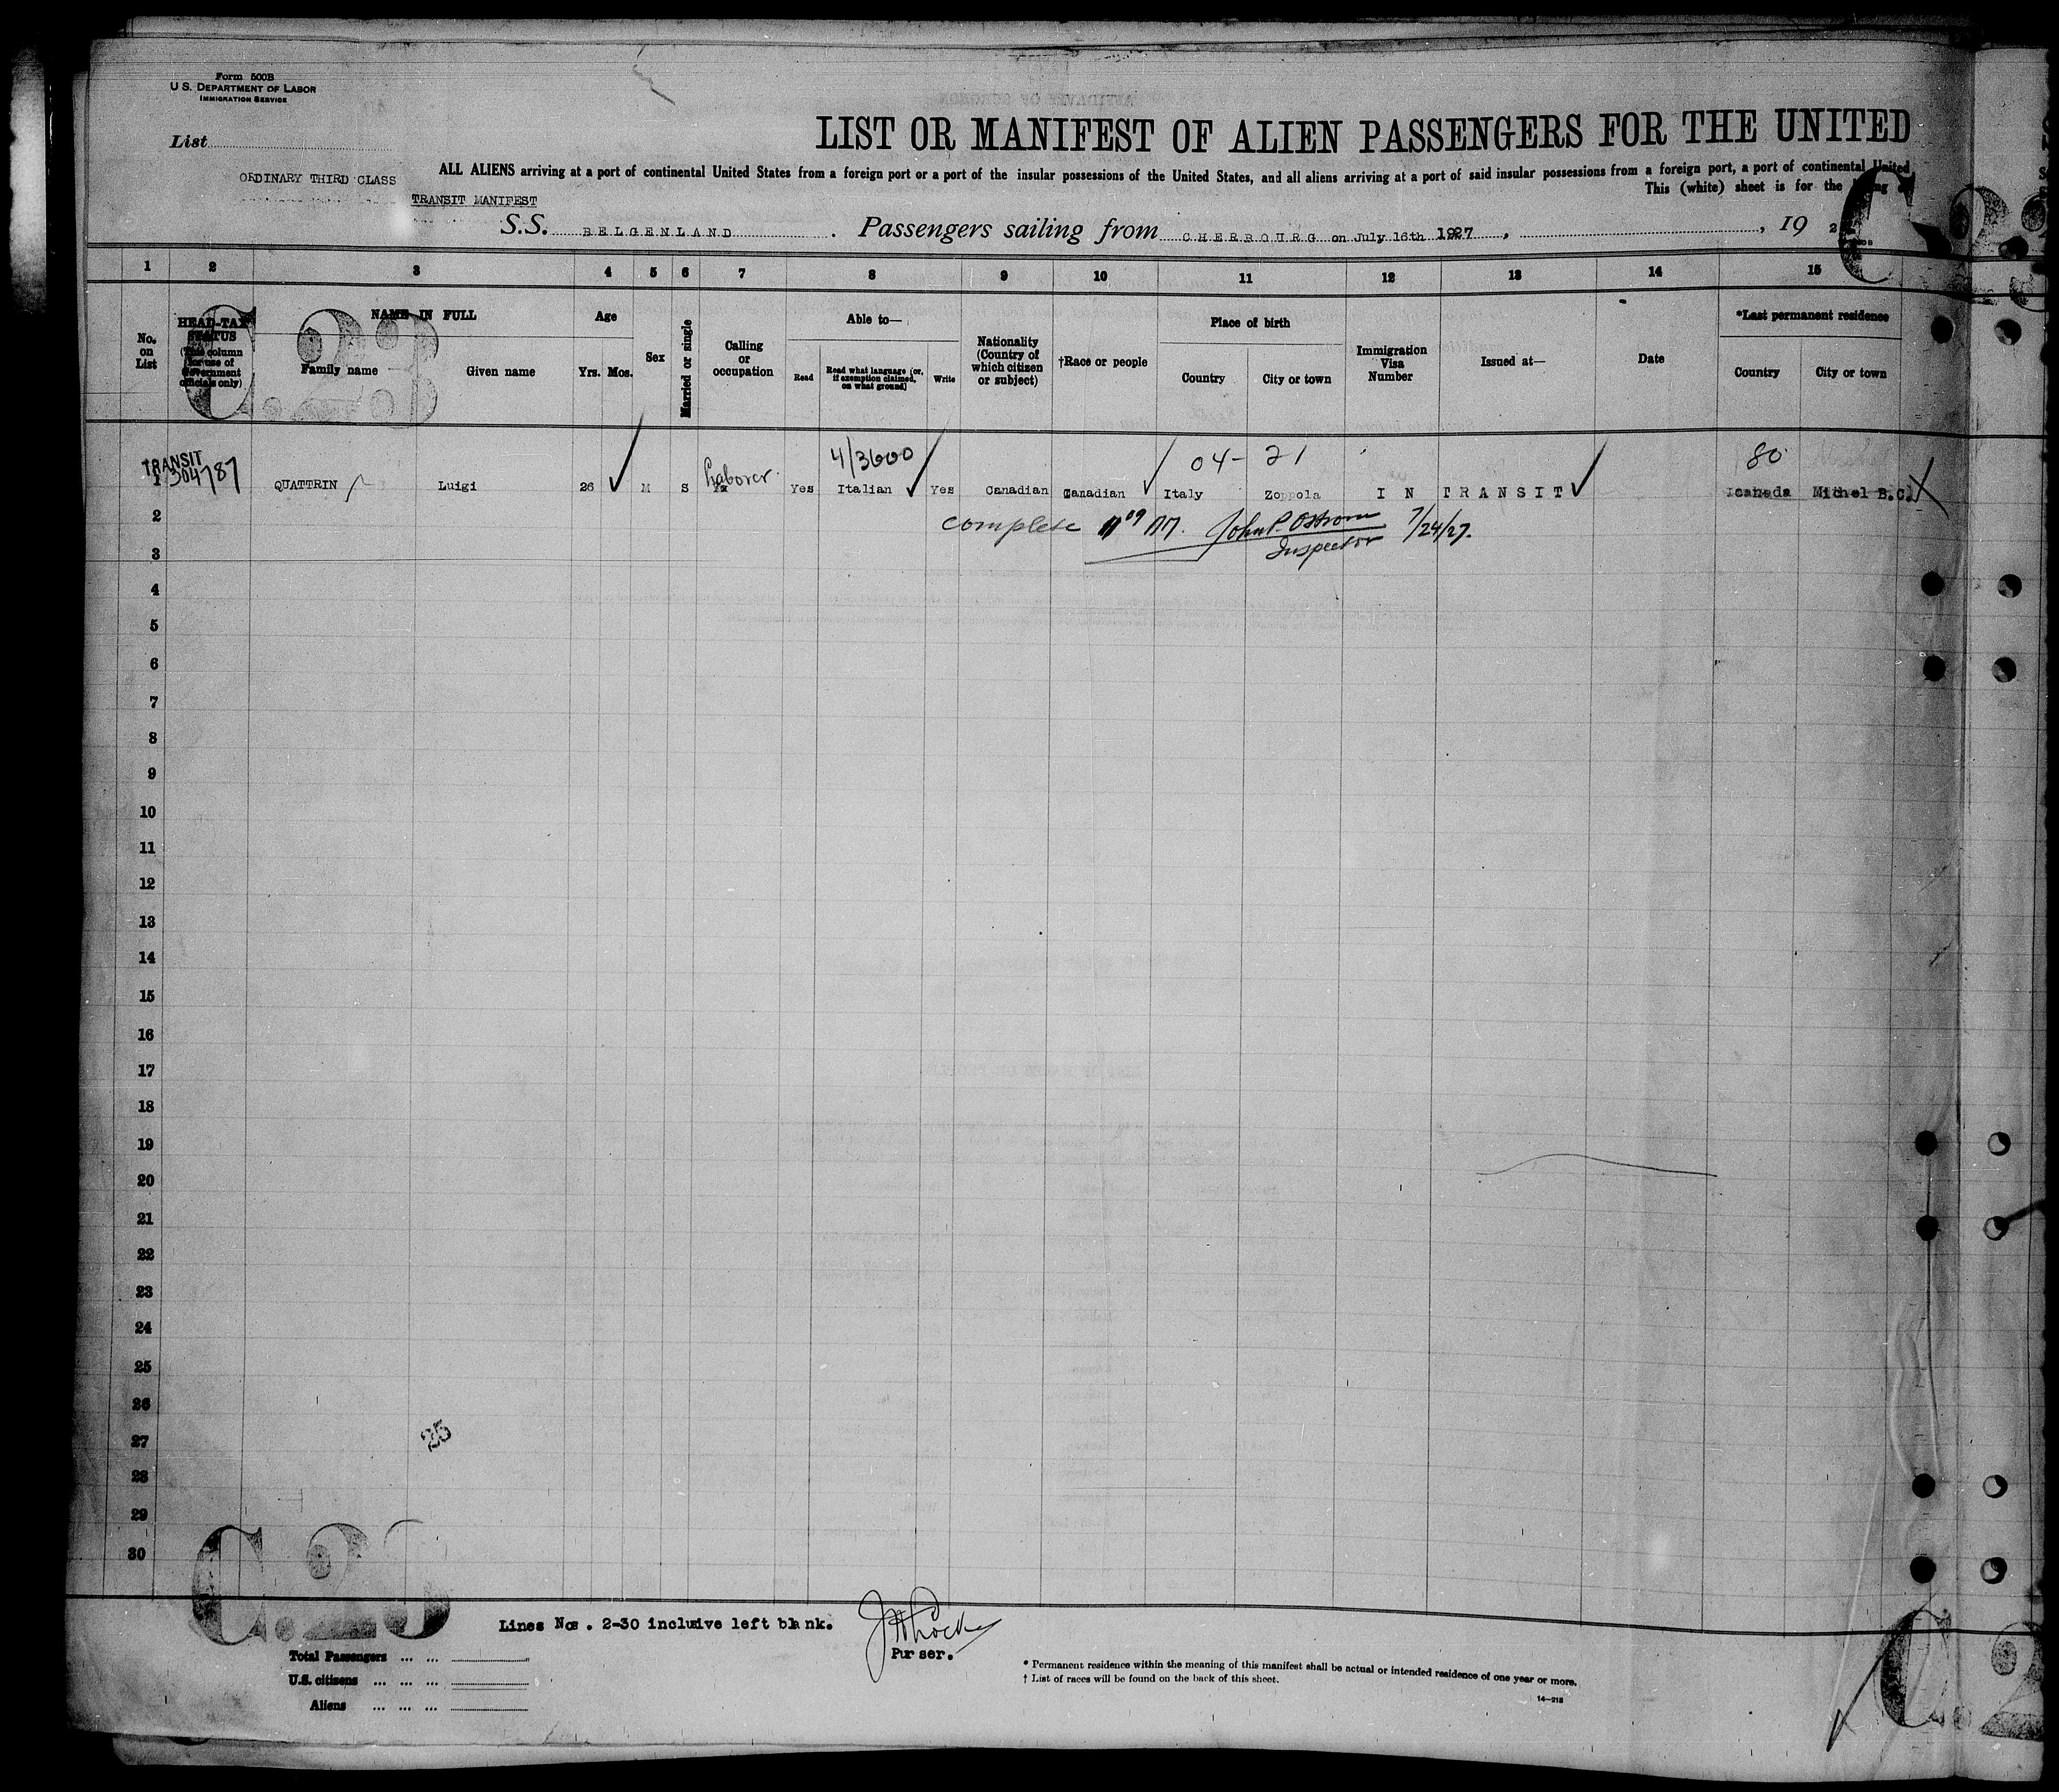 Form 500B
U. S. DEPARTMENT OF LABOR
IMMIGRATION SERVICE
List
LIST OR MANIFEST OF ALIEN PASSENGERS FOR THE UNITED
ALL ALIENS arriving at a port of continental United States from a foreign port or a port of the insular possessions of the United States, and all aliens arriving at a port of said insular possessions from a foreign port, a port of continental United
ORDINARY THIRD CLASS
This (white) sheet is for the
TRANSIT MANIFEST
S.S. BELGENLAND. Passengers sailing from CHERBOURG on July 16th 1927, , 19 2
1 2 3 4 5 6 7 8 9 10 11 12 13 14 15
No. on List
HEAD-TAX STATUS (This column for use of Government officials only)
NAME IN FULL
Family name Given name
Age
Yrs. Mos.
Sex
Married or single
Calling or occupation
Able to—
Read
Read what language [or, if exemption claimed, on what ground]
Write
Nationality (Country of which citizen or subject)
†Race or people
Place of birth
Country City or town
Immigration Visa Number
Issued at—
Date
*Last permanent residence
Country City or town
C.23
TRANSIT
304787
Laborer 4/3600 04- 21 80
1 QUATTRIN Luigi 26 M S Yes Italian Yes Canadian Canadian Italy Zoppola IN TRANSIT Canada Michel B.C.
complete John P. Ostrom 7/24/27.
Inspector
2
3
4
5
6
7
8
9
10
11
12
13
14
15
16
17
18
19
20
21
22
23
24
25
26
27
28
29
30
25
C.23
Lines Nos. 2-30 inclusive left blank.
Purser.
Total Passengers ... ...
U.S. citizens ... ... ...
Aliens ... ... ...
* Permanent residence within the meaning of this manifest shall be actual or intended residence of one year or more.
† List of races will be found on the back of this sheet.
14-218